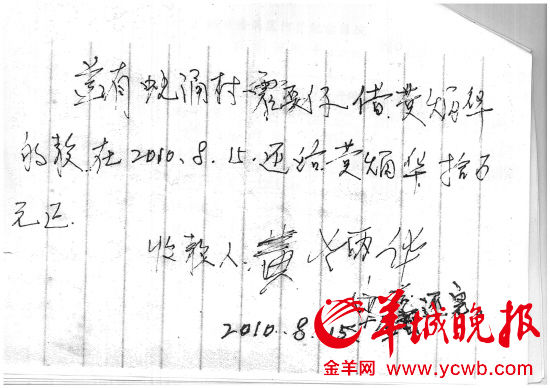 兹有蚬涌村霍要仔借黄炳华
的款.在2010.8.15.还给黄炳华拾万
元正.
收款人:黄炳华
还完
2010.8.15.
羊城晚报
金羊网 www.ycwb.com